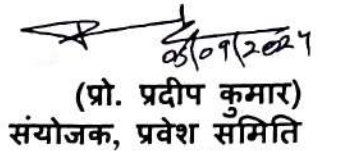 05/09/2024
(प्रो. प्रदीप कुमार)
संयोजक, प्रवेश समिति